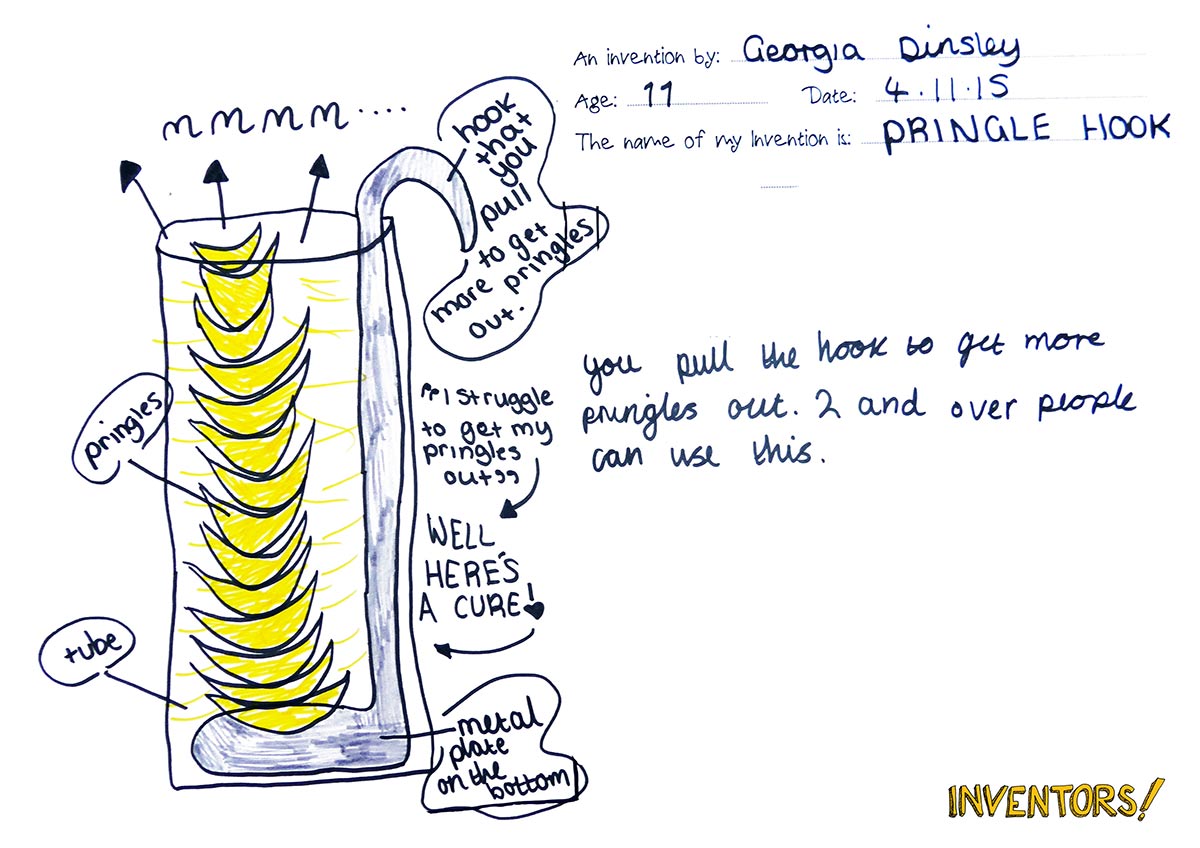 An invention by: Georgia Dinsley
Age: 11 Date: 4.11.15
The name of my Invention is: PRINGLE HOOK
mmmm....
hook
that
you
pull
to get
more pringles
out.
you pull the hook to get more
pringles out. 2 and over people
can use this.
pringles
"I struggle
to get my
pringles
out"
WELL
HERE'S
A CURE!
tube
metal
plate
on the
bottom
INVENTORS!